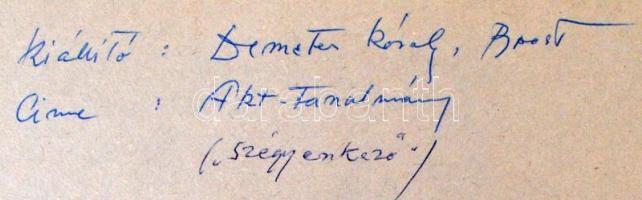 Kiállító : Demeter Károly, Brassó
Cime : Akt-Tanulmány
("Szégyenkező")
darabanth